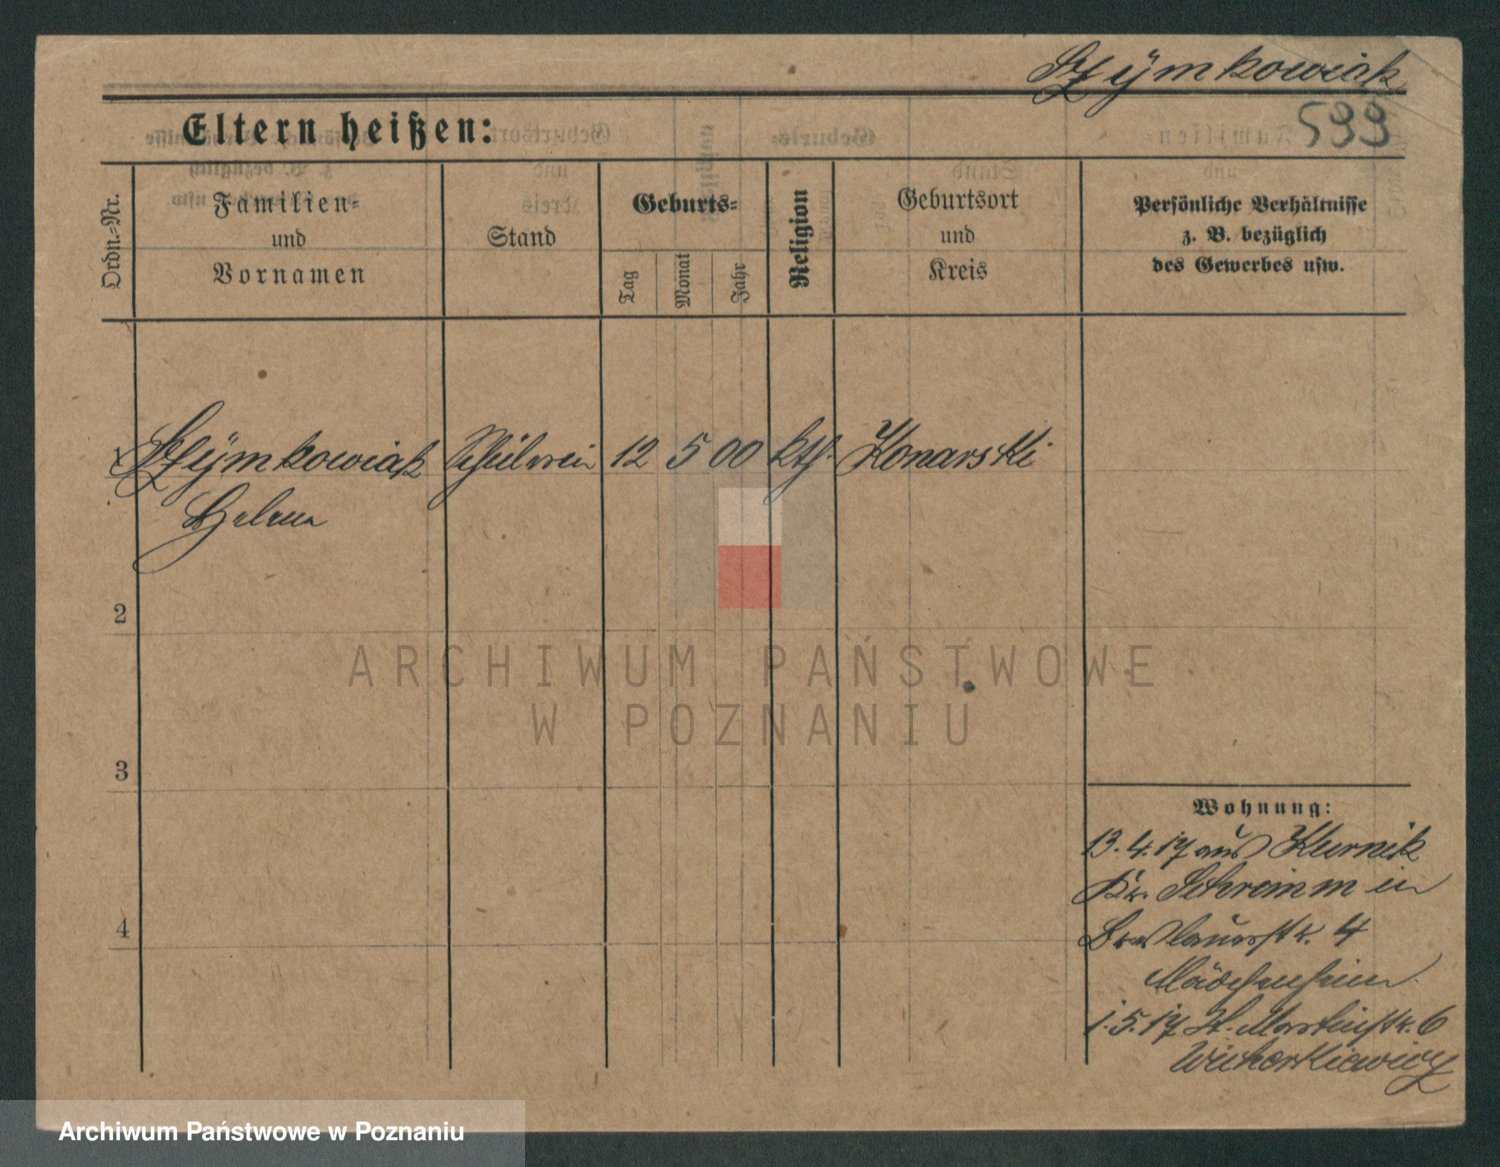 Szymkowiak
599
Eltern heißen:
Ordn.=Nr.
Familien=
und
Vornamen
Stand
Geburts=
Tag
Monat
Jahr
Religion
Geburtsort
und
Kreis
Persönliche Verhältnisse
z. B. bezüglich
des Gewerbes usw.
1 Szÿmkowiak Schülerin 12 5 00 kth. Konarski
Helena
2
3
4
Wohnung:
13.4.17 aus Kurnik
Kr. Schrimm in
Breslauerstr. 4
Mädchenheim
1.5.17 St. Martinstr. 6
Wicherkiewicz
ARCHIWUM PAŃSTWOWE
W POZNANIU
Archiwum Państwowe w Poznaniu